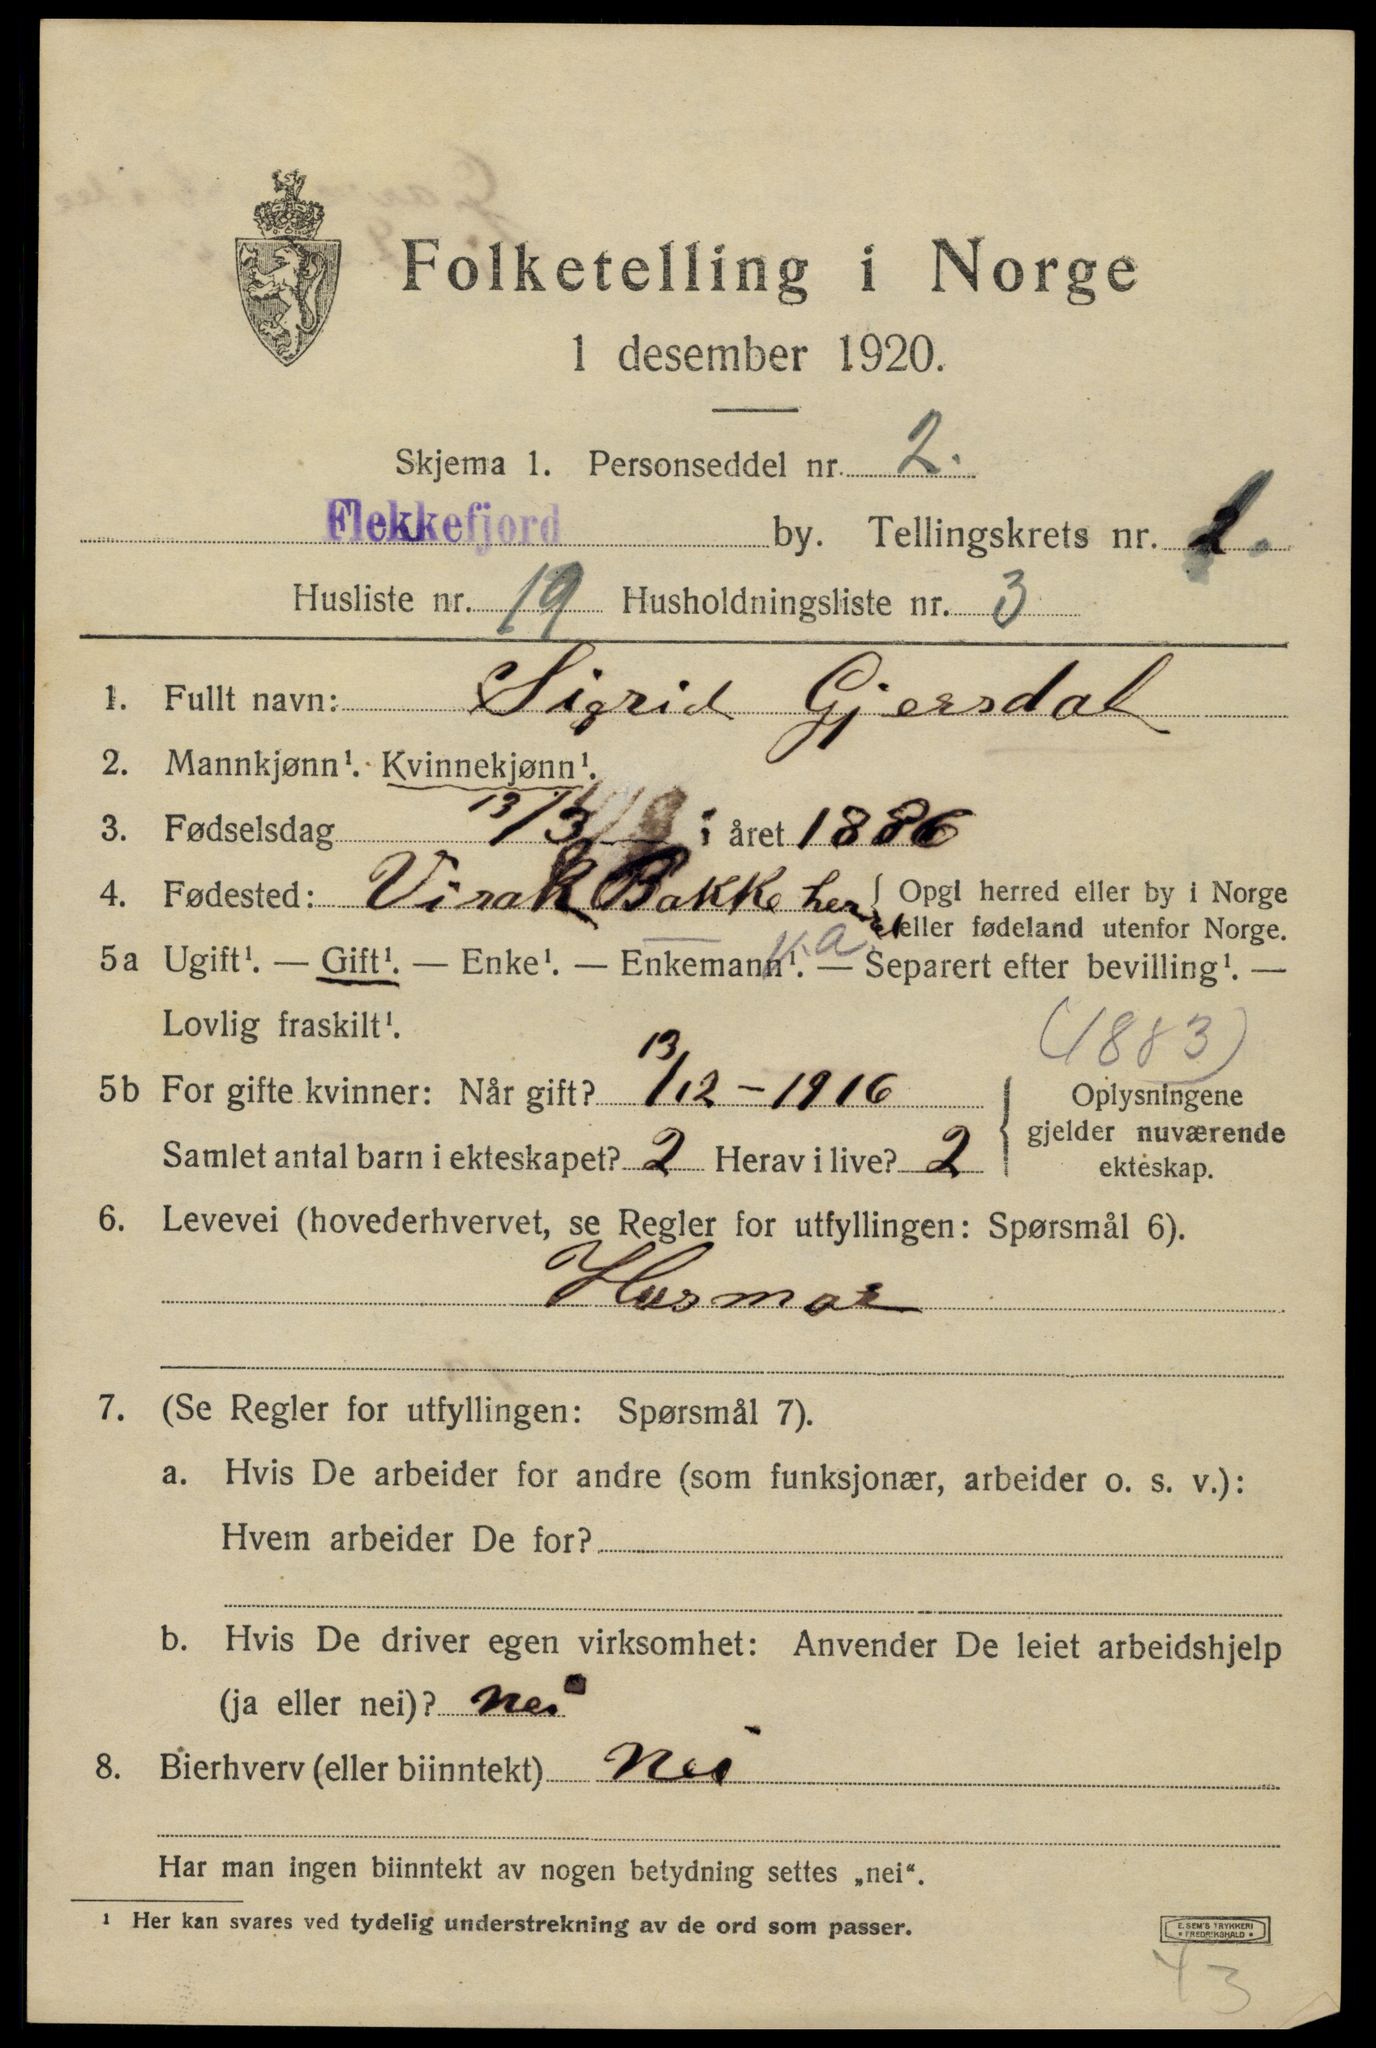 Folketelling i Norge
1 desember 1920.
Skjema 1. Personseddel nr. 2.
Flekkefjord by. Tellingskrets nr. 2.
Husliste nr. 19 Husholdningsliste nr. 3
1. Fullt navn: Sigrid Gjersdal
2. Mannkjønn¹. Kvinnekjønn¹.
3. Fødselsdag 13/3 i året 1886
4. Fødested: Virak Bakke herret { Opgi herred eller by i Norge
eller fødeland utenfor Norge.
V.a.
5a Ugift¹. — Gift¹. — Enke¹. — Enkemann¹. — Separert efter bevilling¹. —
Lovlig fraskilt¹.
(1883)
5b For gifte kvinner: Når gift? 13/12 - 1916 { Oplysningene
gjelder nuværende
Samlet antal barn i ekteskapet? 2 Herav i live? 2
ekteskap.
6. Levevei (hovederhvervet, se Regler for utfyllingen: Spørsmål 6).
Husmor
7. (Se Regler for utfyllingen: Spørsmål 7).
a. Hvis De arbeider for andre (som funksjonær, arbeider o. s. v.):
Hvem arbeider De for?
b. Hvis De driver egen virksomhet: Anvender De leiet arbeidshjelp
(ja eller nei)? nei
8. Bierhverv (eller biinntekt) Nei
Har man ingen biinntekt av nogen betydning settes „nei“.
¹ Her kan svares ved tydelig understrekning av de ord som passer.
E. SEM'S TRYKKERI
* FREDRIKSHALD *
43